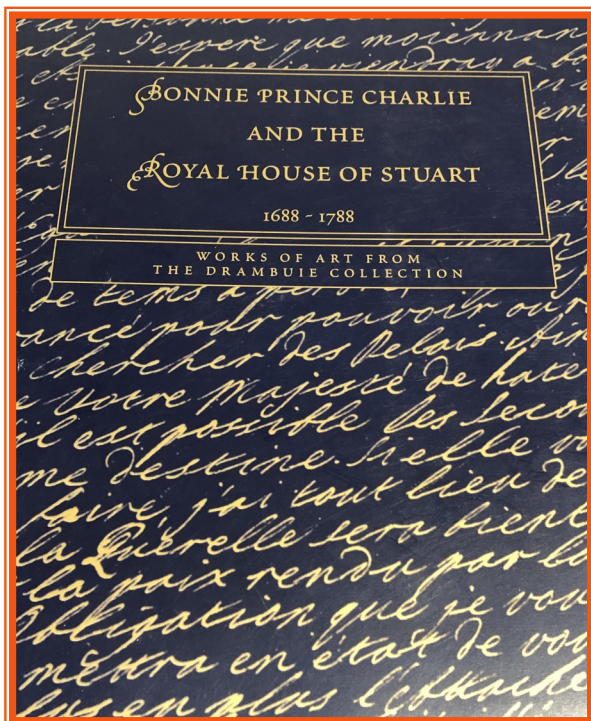 la personne
able. J'espere que moiennan
viendray a bo
BONNIE PRINCE CHARLIE
AND THE
ROYAL HOUSE OF STUART
1688 - 1788
WORKS OF ART FROM
THE DRAMBUIE COLLECTION
de tems a
ance pour pouvoir
chercher des Relais. Ain
e Votre Majesté de hate
il est possible les secou
me destine. Sielle
faire, j'ai tout lieu de
la Querelle sera bient
la paix rendu par
Obligation que je vou
mettra en état de vou
en plus l'attache